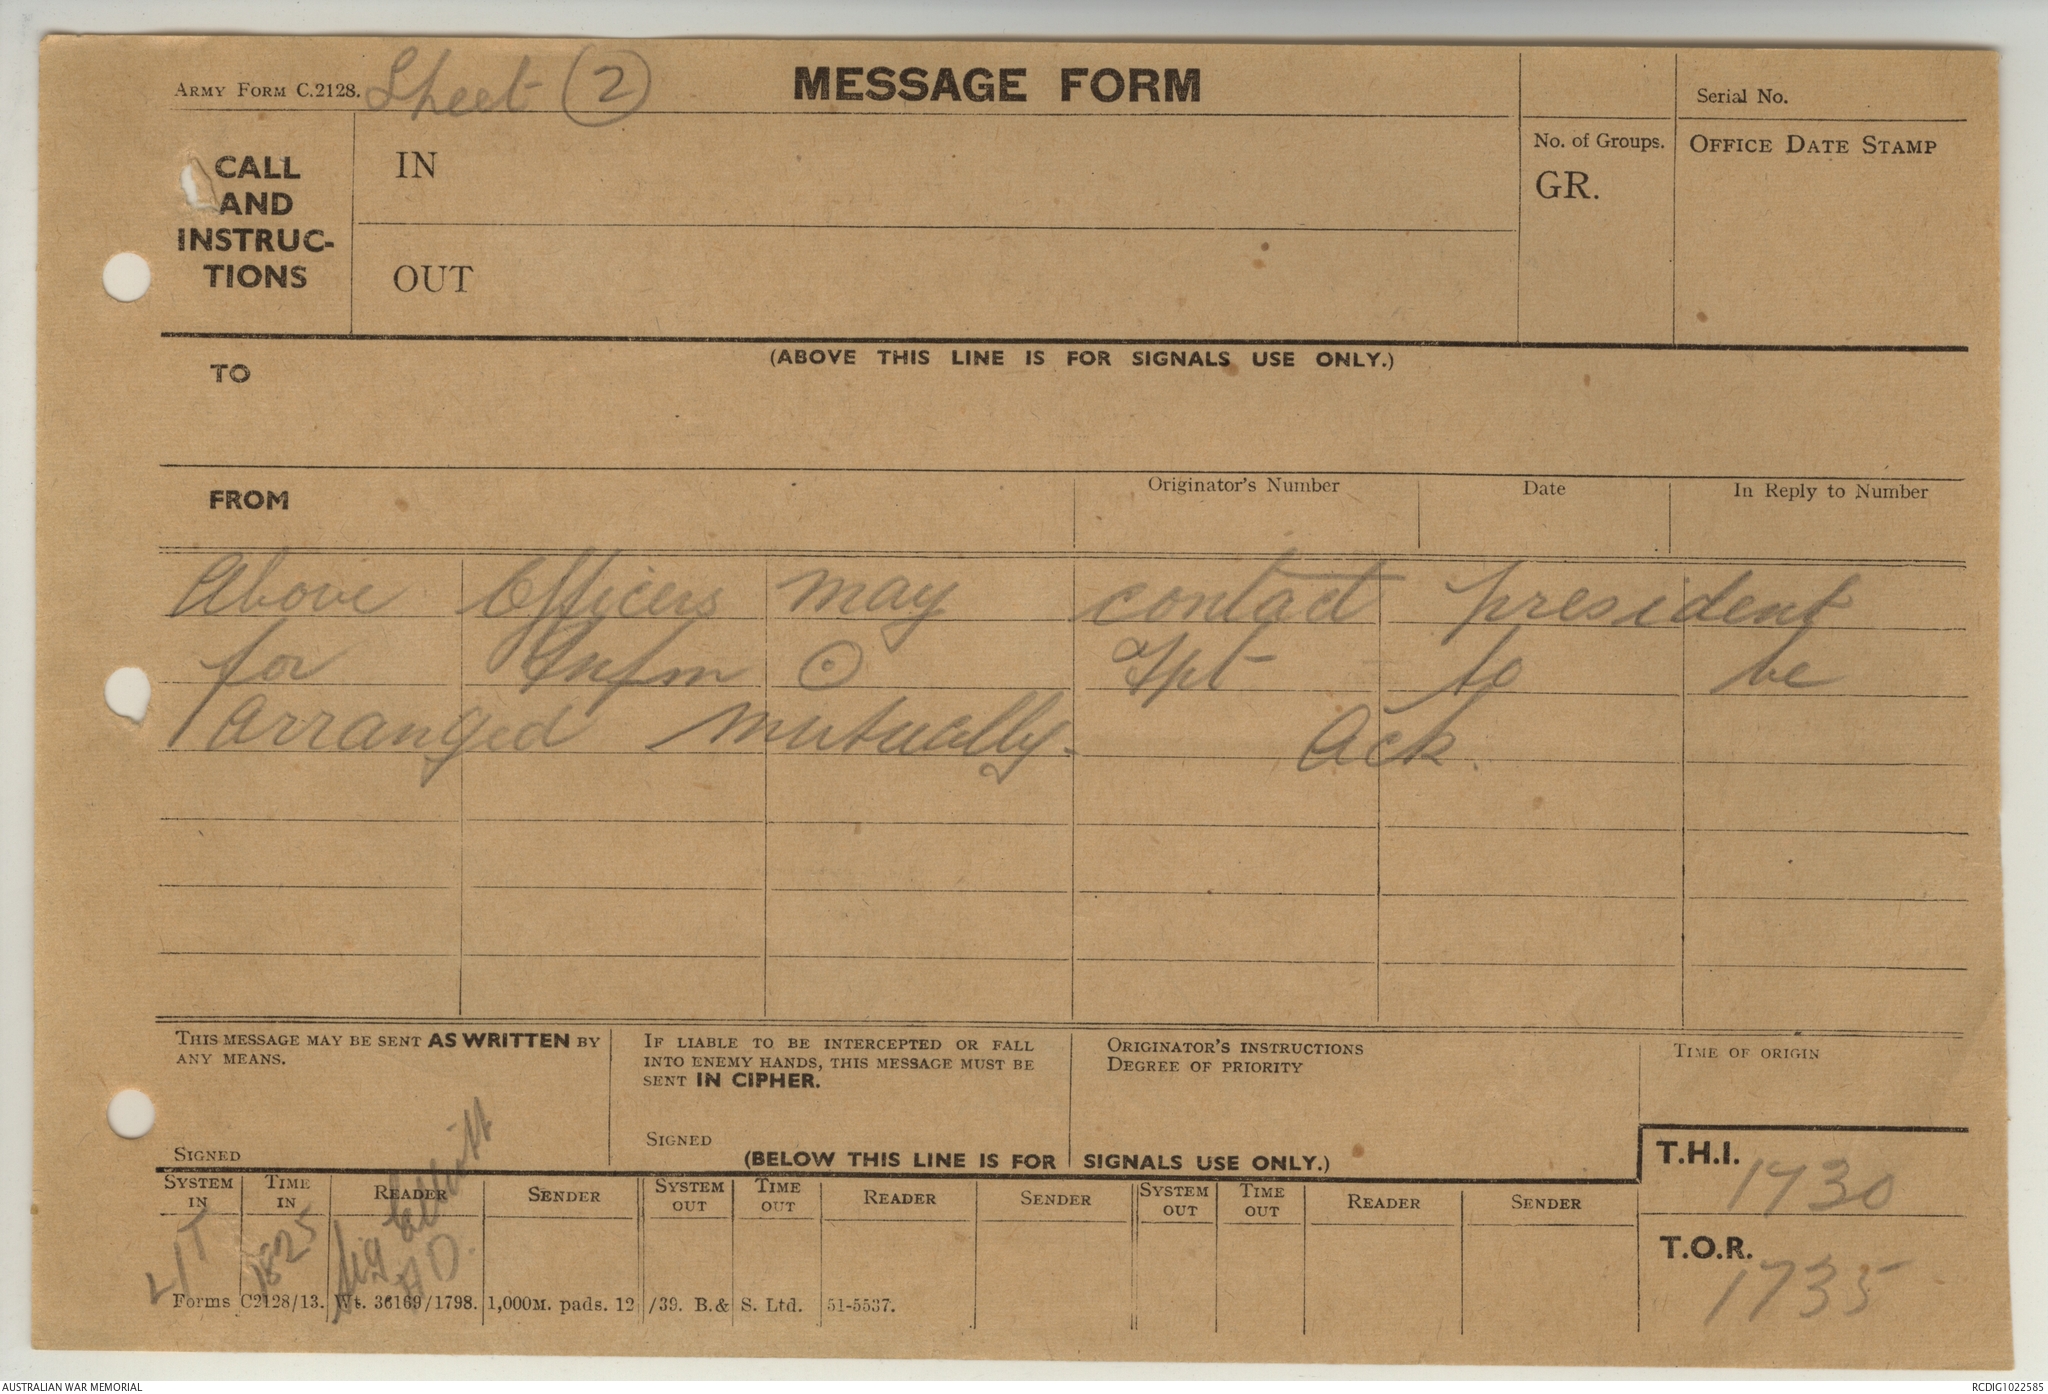 ARMY FORM C.2128. Sheet (2) MESSAGE FORM Serial No.
CALL
AND
INSTRUC-
TIONS
IN
OUT
No. of Groups.
GR.
OFFICE DATE STAMP
(ABOVE THIS LINE IS FOR SIGNALS USE ONLY.)
TO
FROM
Originator's Number
Date
In Reply to Number
Above Officers may contact president
for Infm ⊙ Tpt to be
Arranged mutually. Ack.
THIS MESSAGE MAY BE SENT AS WRITTEN BY
ANY MEANS.
SIGNED
IF LIABLE TO BE INTERCEPTED OR FALL
INTO ENEMY HANDS, THIS MESSAGE MUST BE
SENT IN CIPHER.
SIGNED
ORIGINATOR'S INSTRUCTIONS
DEGREE OF PRIORITY
TIME OF ORIGIN
(BELOW THIS LINE IS FOR SIGNALS USE ONLY.)
T.H.I.
1730
T.O.R.
1735
SYSTEM IN
TIME IN
READER
SENDER
SYSTEM OUT
TIME OUT
READER
SENDER
SYSTEM OUT
TIME OUT
READER
SENDER
L/T
1825
Sig
AD.
Forms C2128/13. Wt. 36169/1798. 1,000M. pads. 12/39. B.& S. Ltd. 51-5537.
AUSTRALIAN WAR MEMORIAL
RCDIG1022585